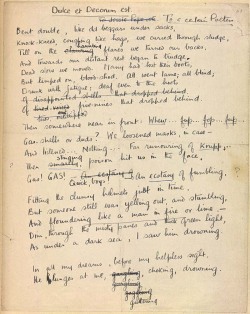 Dulce et Decorum est.
To a certain Poetess
Bent double, like old beggars under sacks,
Knock-kneed, coughing like hags, we cursed through sludge,
Till on the haunting flares we turned our backs,
And towards our distant rest began to trudge.
Dead slow we moved. Many had lost their boots,
But limped on, blood-shod. All went lame; all blind;
Drunk with fatigue; deaf even to the hoots
Of disappointed shells that dropped behind.
Of five-nines that dropped behind.
Then somewhere near in front: Whew... fup.. fop.. fup..
Gas-shells or duds? We loosened masks, in case —
And listened... Nothing... Far rumouring of Krupp;
stinging
Then poison hit us in the face.
Gas! GAS! An ecstasy of fumbling,
Quick, boys!
Fitting the clumsy helmets just in time.
But someone still was yelling out, and stumbling,
And floundering like a man in fire or lime —
Dim, through the misty panes and green light,
As under a dark sea, I saw him drowning.
In all my dreams, before my helpless sight,
He plunges at me, choking, drowning.
guttering